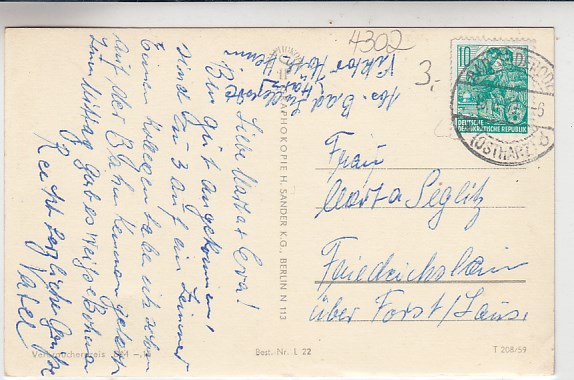 4302
3,-
10
DEUTSCHE
DEMOKRATISCHE REPUBLIK
(OSTHARZ)
Bad
Suderode
Harz
Viktor
Heim
Liebe Marta + Eva!
Bin gut angekommen,
sind zu 3 auf ein Zimmer
Einen Kollegen habe ich schon
auf der Bahn kennen gelernt
zum Mittag gab es weiße Bohnen
Recht herzliche Grüße
Vater
Frau
Marta Seglitz
Friedrichshain
über Forst/Laus.
H. SANDER K.G., BERLIN N 113
Verbraucherpreis DM -,
Best. Nr. L 22
T 208/59